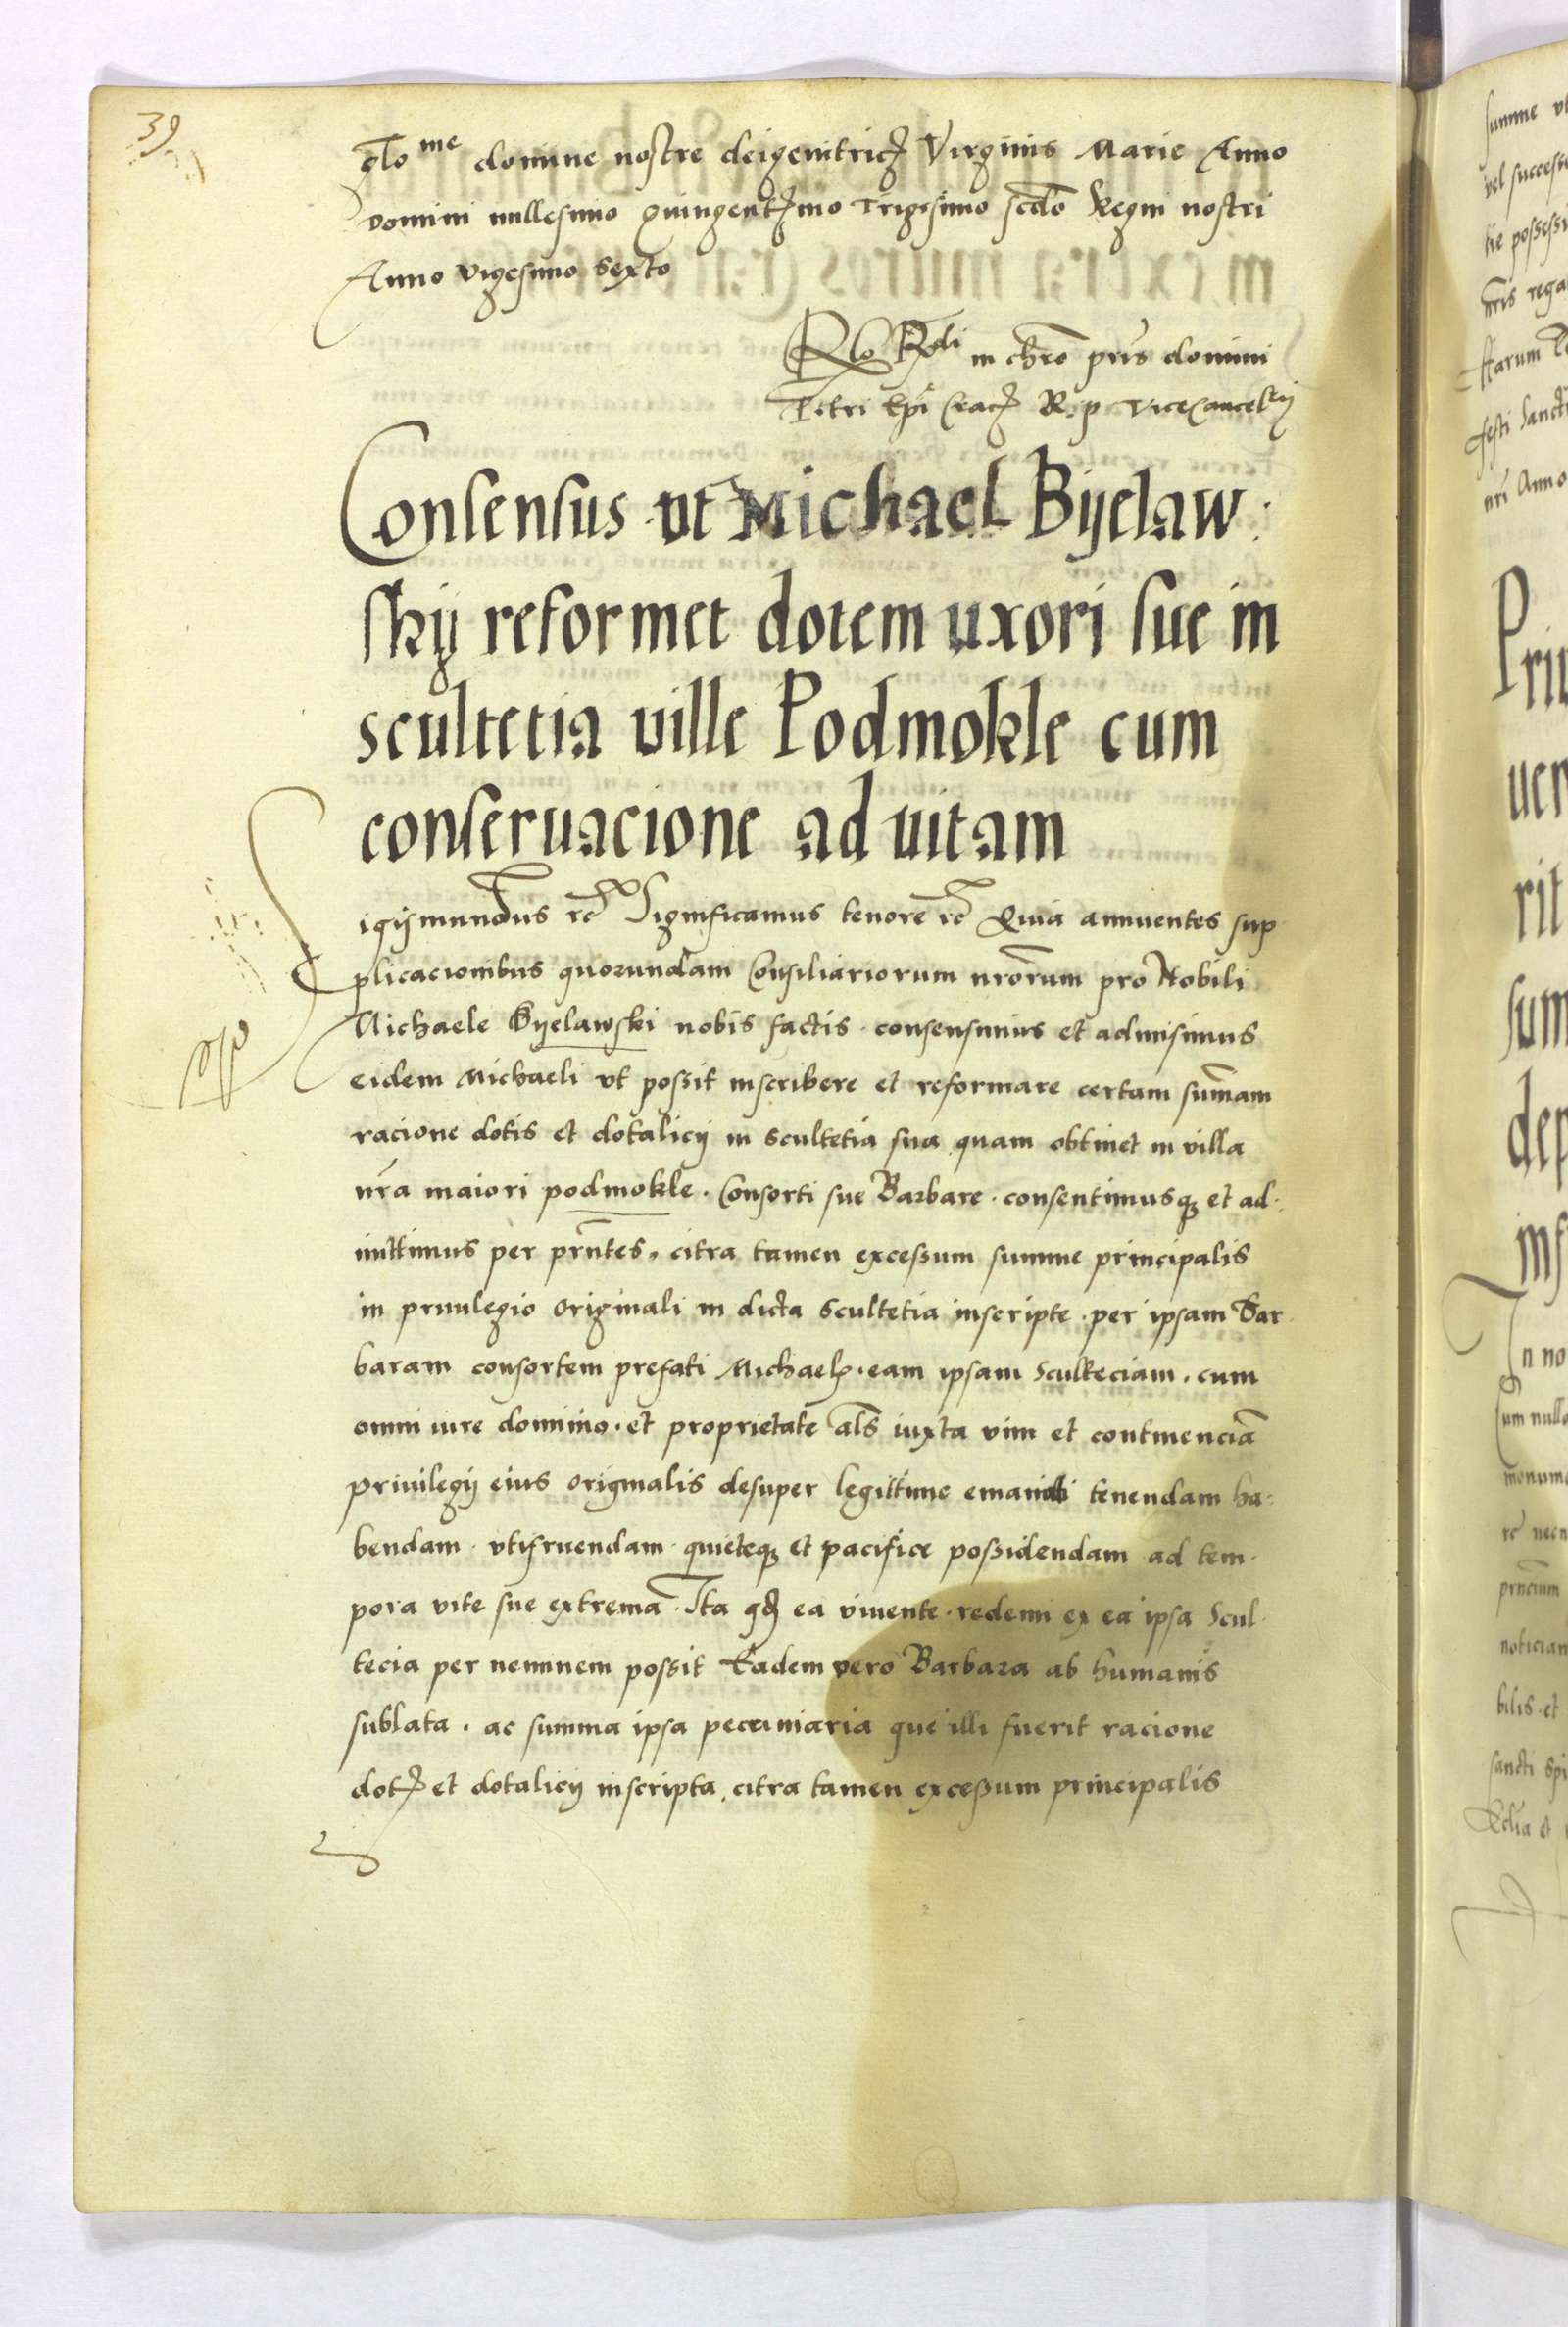 39
glo^me domine nostre deigenitricꝭ Virginis Marie Anno
domini millesimo quingentꝭmo Trigesimo scdo Regni nostri
Anno vigesimo sexto
Rlo R^di in chro pris domini
Petri Epi Cracꝭ R. p. vicecancelrij
Consensus ut Michael Bijelaw
skij reformet dotem uxori sue in
scultetia ville Podmokle cum
conservacione ad vitam
Sigijmundus rc Significamus tenore rc Quia annuentes sup
plicacionibus quorundam Consiliariorum nrorum pro Nobili
Michaele Byelawski nobis factis. consensimus et admisimus
eidem Michaeli vt possit inscribere et reformare certam sumam
racione dotis et dotalicij in scultetia sua quam obtinet in villa
nra maiori podmokle. Consorti sue Barbare. consentimusqꝫ et ad-
mittimus per prntes. citra tamen excessum summe principalis
in privilegio originali in dicta Scultetia inscripte. per ipsam Bar
baram consortem prefati Michaelꝭ. eam ipsam Sculteciam. cum
omni iure dominio. et proprietate als iuxta vim et continencia
privilegij eius originalis desuper legittime emanati tenendam ha-
bendam. vtifruendam. quieteqꝫ et pacifice possidendam ad tem-
pora vite sue extrema. Ita qd ea vivente. redemi ex ea ipsa Scul-
tecia per neminem possit Eadem vero Barbara ab humanis
sublata. ac summa ipsa pecuniaria que illi fuerit racione
dotꝭ et dotalicij inscripta, citra tamen excessum principalis
summe
vel success
possessi
nris rega
festi Sanct
nri Anno
rit
sum
dep
inf
In no
um null
monum
rc necn
noticiam
bilis. et
sancti Spi